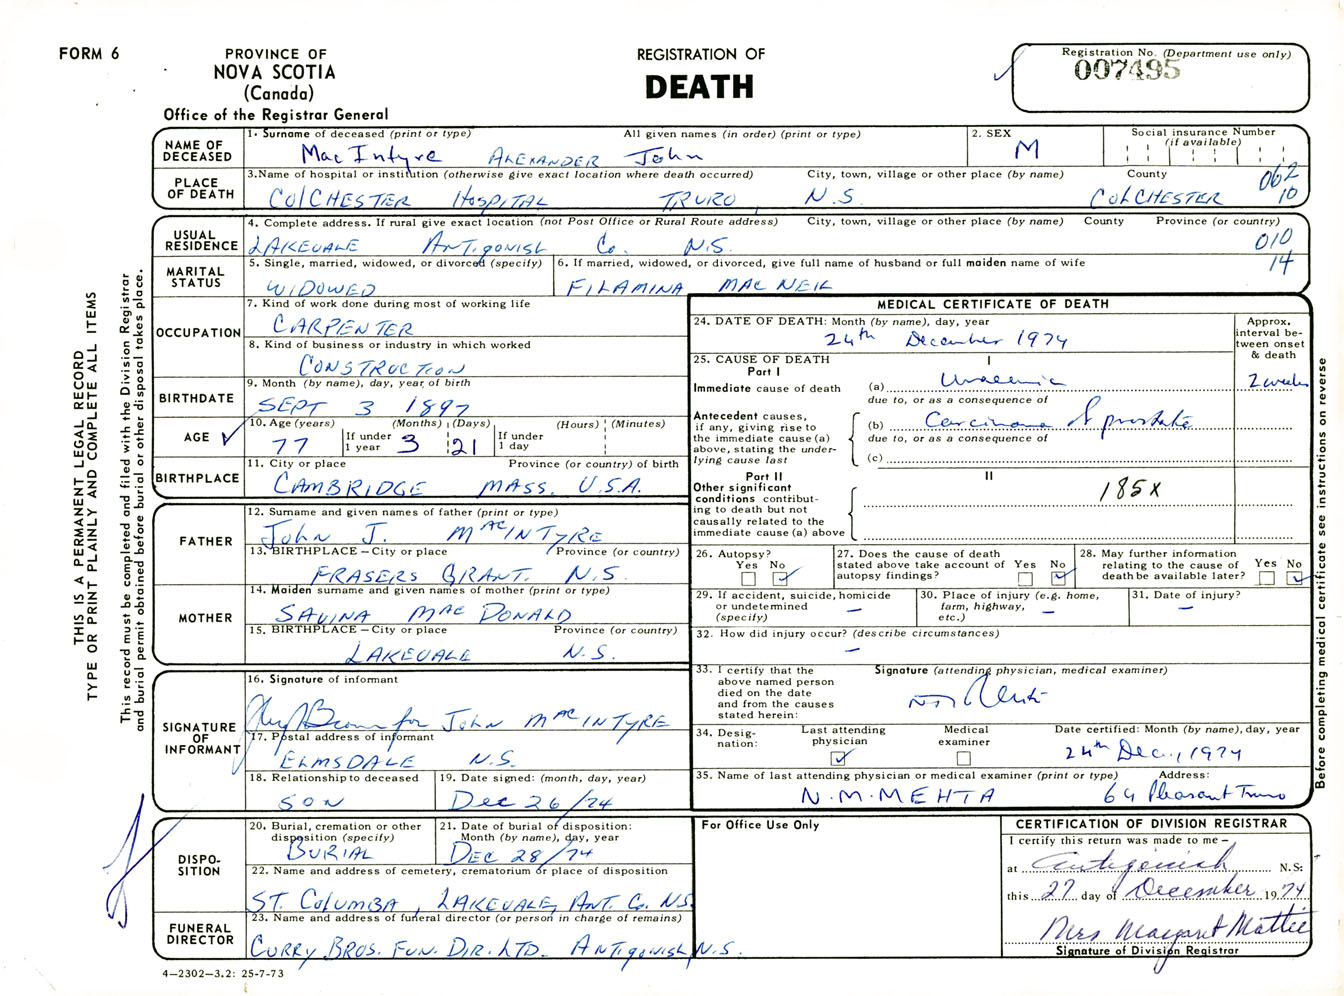 FORM 6
PROVINCE OF
NOVA SCOTIA
(Canada)
Office of the Registrar General
REGISTRATION OF
DEATH
Registration No. (Department use only)
007495
THIS IS A PERMANENT LEGAL RECORD
TYPE OR PRINT PLAINLY AND COMPLETE ALL ITEMS
This record must be completed and filed with the Division Registrar
and burial permit obtained before burial or other disposal takes place.
NAME OF DECEASED
1. Surname of deceased (print or type) All given names (in order) (print or type)
MacIntyre ALEXANDER John
2. SEX
M
Social insurance Number
(if available)
PLACE OF DEATH
3. Name of hospital or institution (otherwise give exact location where death occurred) City, town, village or other place (by name) County
COLCHESTER HOSPITAL TRURO, N.S. COLCHESTER
062
10
USUAL RESIDENCE
4. Complete address. If rural give exact location (not Post Office or Rural Route address) City, town, village or other place (by name) County Province (or country)
LAKEVALE ANTIGONISH Co. N.S.
010
14
MARITAL STATUS
5. Single, married, widowed, or divorced (specify)
WIDOWED
6. If married, widowed, or divorced, give full name of husband or full maiden name of wife
FILAMINA MAC NEIL
OCCUPATION
7. Kind of work done during most of working life
CARPENTER
8. Kind of business or industry in which worked
CONSTRUCTION
BIRTHDATE
9. Month (by name), day, year of birth
SEPT 3 1897
AGE
10. Age (years) (Months) (Days) (Hours) (Minutes)
77 If under 1 year 3 21 If under 1 day
BIRTHPLACE
11. City or place Province (or country) of birth
CAMBRIDGE MASS. U.S.A.
FATHER
12. Surname and given names of father (print or type)
John J. MACINTYRE
13. BIRTHPLACE – City or place Province (or country)
FRASERS GRANT. N.S.
MOTHER
14. Maiden surname and given names of mother (print or type)
SAVINA MAC DONALD
15. BIRTHPLACE – City or place Province (or country)
LAKEVALE N.S.
SIGNATURE OF INFORMANT
16. Signature of informant
for JOHN MACINTYRE
17. Postal address of informant
ELMSDALE N.S.
18. Relationship to deceased
SON
19. Date signed: (month, day, year)
Dec 26/74
DISPO-
SITION
20. Burial, cremation or other disposition (specify)
BURIAL
21. Date of burial or disposition: Month (by name), day, year
DEC 28/74
22. Name and address of cemetery, crematorium or place of disposition
ST. COLUMBA, LAKEVALE, ANT. Co. N.S.
FUNERAL DIRECTOR
23. Name and address of funeral director (or person in charge of remains)
CURRY BROS. FUN. DIR. LTD. ANTIGONISH, N.S.
4—2302—3.2: 25-7-73
MEDICAL CERTIFICATE OF DEATH
24. DATE OF DEATH: Month (by name), day, year
24th December 1974
Approx. interval between onset & death
25. CAUSE OF DEATH
Part I
I
Immediate cause of death
(a) Uraemia
2 weeks
due to, or as a consequence of
Antecedent causes, if any, giving rise to the immediate cause (a) above, stating the underlying cause last
(b) Carcinoma of prostate
due to, or as a consequence of
(c)
Part II
II
Other significant conditions contributing to death but not causally related to the immediate cause (a) above
185X
26. Autopsy?
Yes No
27. Does the cause of death stated above take account of autopsy findings?
Yes No
28. May further information relating to the cause of death be available later?
Yes No
29. If accident, suicide, homicide or undetermined (specify)
–
30. Place of injury (e.g. home, farm, highway, etc.)
–
31. Date of injury?
–
32. How did injury occur? (describe circumstances)
–
33. I certify that the above named person died on the date and from the causes stated herein:
Signature (attending physician, medical examiner)
34. Desig-
nation:
Last attending physician
Medical examiner
Date certified: Month (by name), day, year
24th Dec., 1974
35. Name of last attending physician or medical examiner (print or type) Address:
N.M. MEHTA 64 Pleasant Truro
Before completing medical certificate see instructions on reverse
For Office Use Only
CERTIFICATION OF DIVISION REGISTRAR
I certify this return was made to me –
at Antigonish N.S:
this 27 day of December 1974
Mrs Margaret Mattie
Signature of Division Registrar